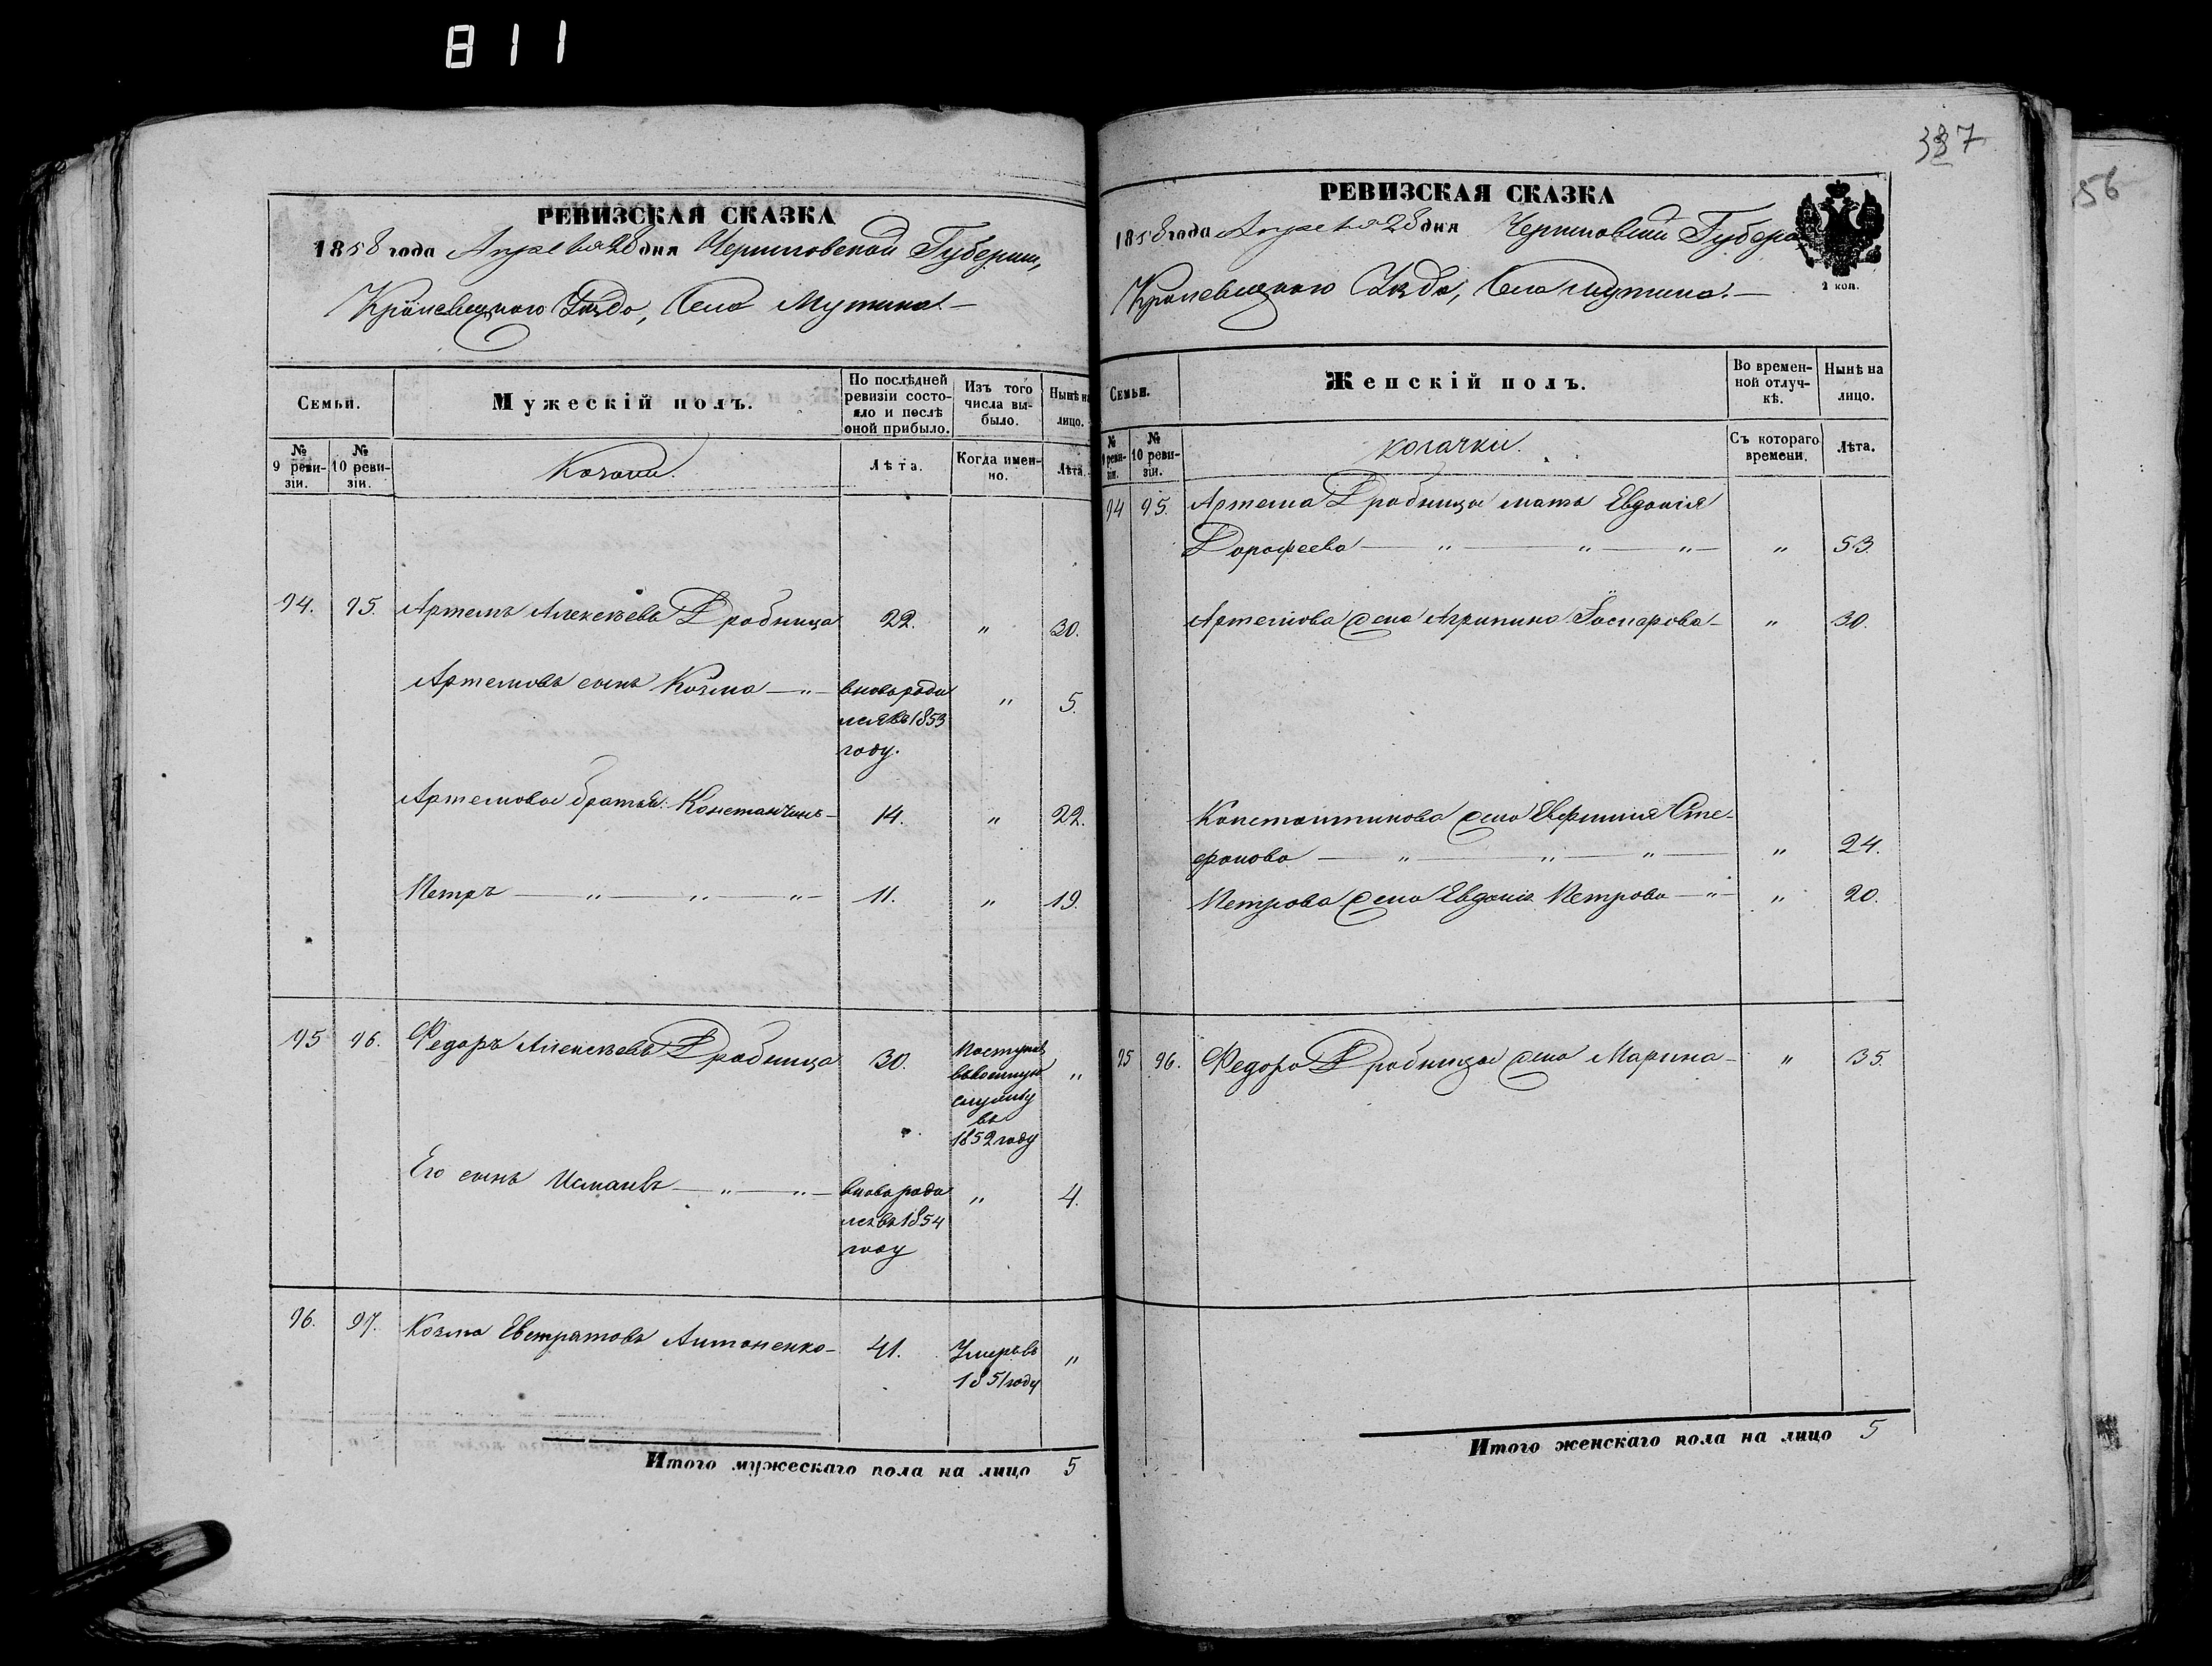 811
РЕВИЗСКАЯ СКАЗКА
1858 года Апреля 28 дня Черниговской Губернии,
Кролевецкого Уезда, Села Мутина
Семьи.
Мужескій полъ.
По послѣдней ревизіи состояло и послѣ оной прибыло.
Изъ того числа выбыло.
Нынѣ на лицо.
№ 9 ревизіи.
№ 10 ревизіи.
Козаки.
Лѣта.
Когда именно.
Лѣта.
94. 95. Артемъ Алексѣевъ Дробница 22. " 30.
Артемовъ сынъ Козма — " — вновь роди " 5.
лся въ 1853
году.
Артемовы братья: Константинъ — 14. " 22.
Петръ — " — " — " — 11. " 19.
95 96. Федоръ Алексѣевъ Дробница 30. Поступилъ "
въ военную
службу
въ
1852 году
Его сынъ — " — " — вновь роди " 4.
лся въ 1854
году
96. 97. Козма Евстратовъ Антоненко — 41. Умеръ въ "
1851 году
Итого мужескаго пола на лицо 5
387
56
РЕВИЗСКАЯ СКАЗКА
1858 года Апреля 28 дня Черниговской Губерн
Кролевецкого Уезда, Села Мутина. —
2 коп.
Семьи.
Женскій полъ.
Во временной отлучкѣ.
Нынѣ на лицо.
№ 9 ревизіи.
№ 10 ревизіи.
козачки.
Съ котораго времени.
Лѣта.
94 95. Артема Дробницы мать Евдокія
Дорофеева — " — " — " — " 53.
Артемова жена Агрипина Гаспарова — " 30.
Константинова жена Евфимія Сте-
фанова — " — " — " — " 24.
Петрова жена Евдокія Петрова — " — " 20.
95 96. Федора Дробницы жена Марина — " 35.
Итого женскаго пола на лицо 5